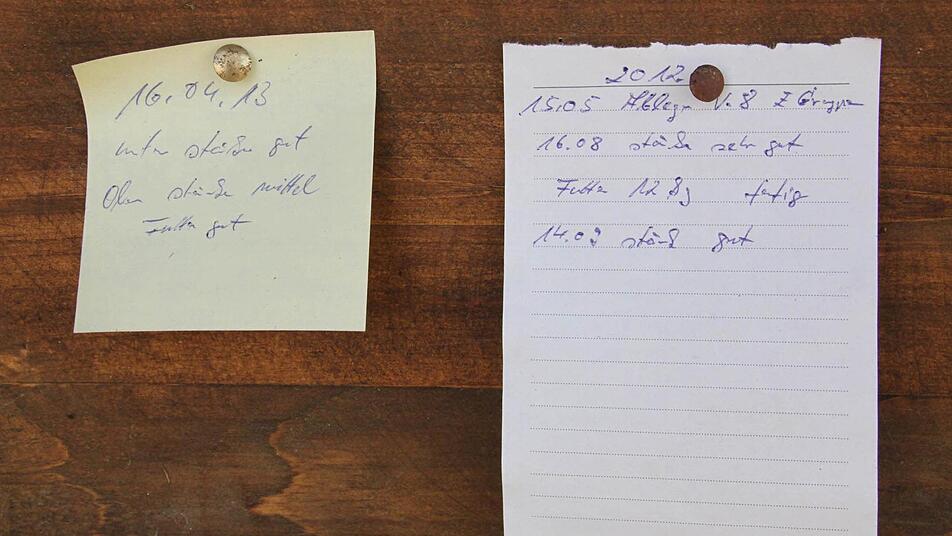 16.04.13
unten stärke gut
Oben stärke mittel
Futter gut
2012
15.05 Ableger V. 8 Z
16.08 stärke sehr gut
Futter 12 kg fertig
14.09 stärke gut